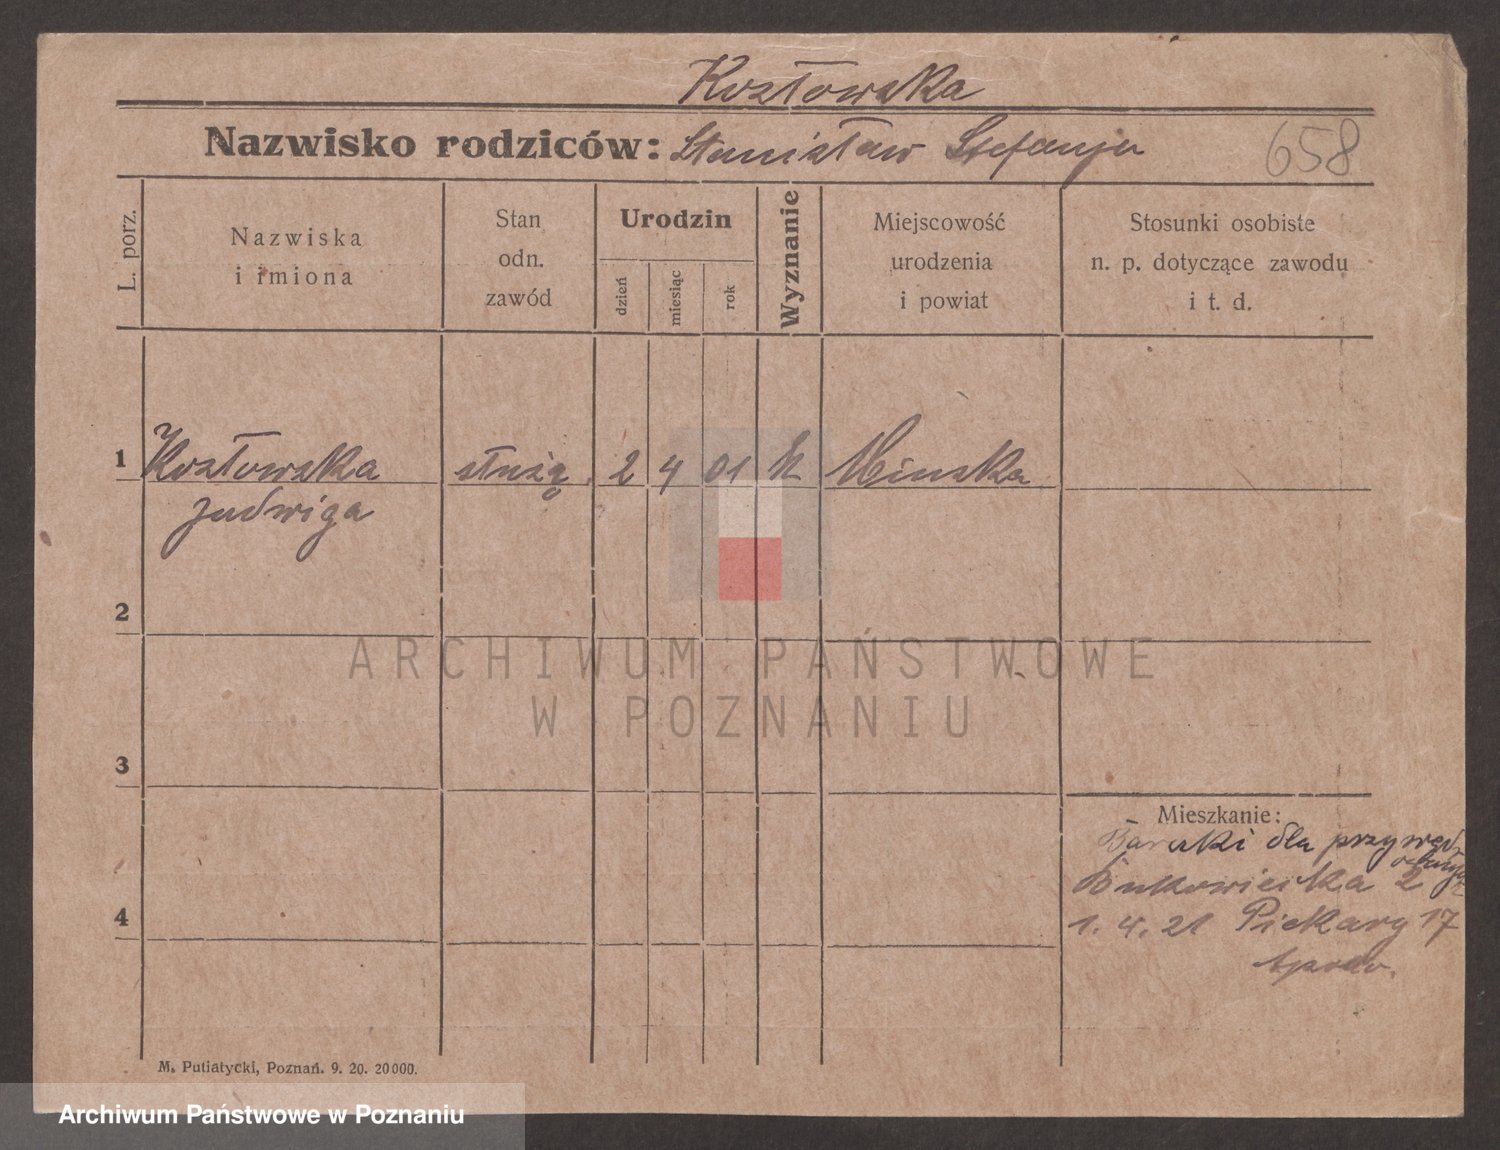 Kozłowska
Nazwisko rodziców: Stanisław Stefanja 658
L. porz.
Nazwiska
i imiona
Stan
odn.
zawód
Urodzin
dzień
miesiąc
rok
Wyznanie
Miejscowość
urodzenia
i powiat
Stosunki osobiste
n. p. dotyczące zawodu
i t. d.
1 Kozłowska służą. 2 4 01 k Minska
Jadwiga
2
3
4
Mieszkanie:
Baraki dla
Bukowieska 2
1. 4. 21 Piekary 17
M. Putiatycki, Poznań. 9. 20. 20000.
ARCHIWUM PAŃSTWOWE
W POZNANIU
Archiwum Państwowe w Poznaniu